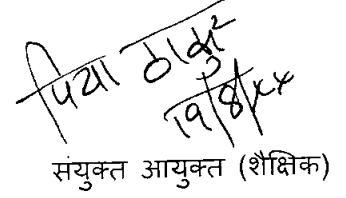 पिया ठाकुर
19/8/२४
संयुक्त आयुक्त (शैक्षिक)